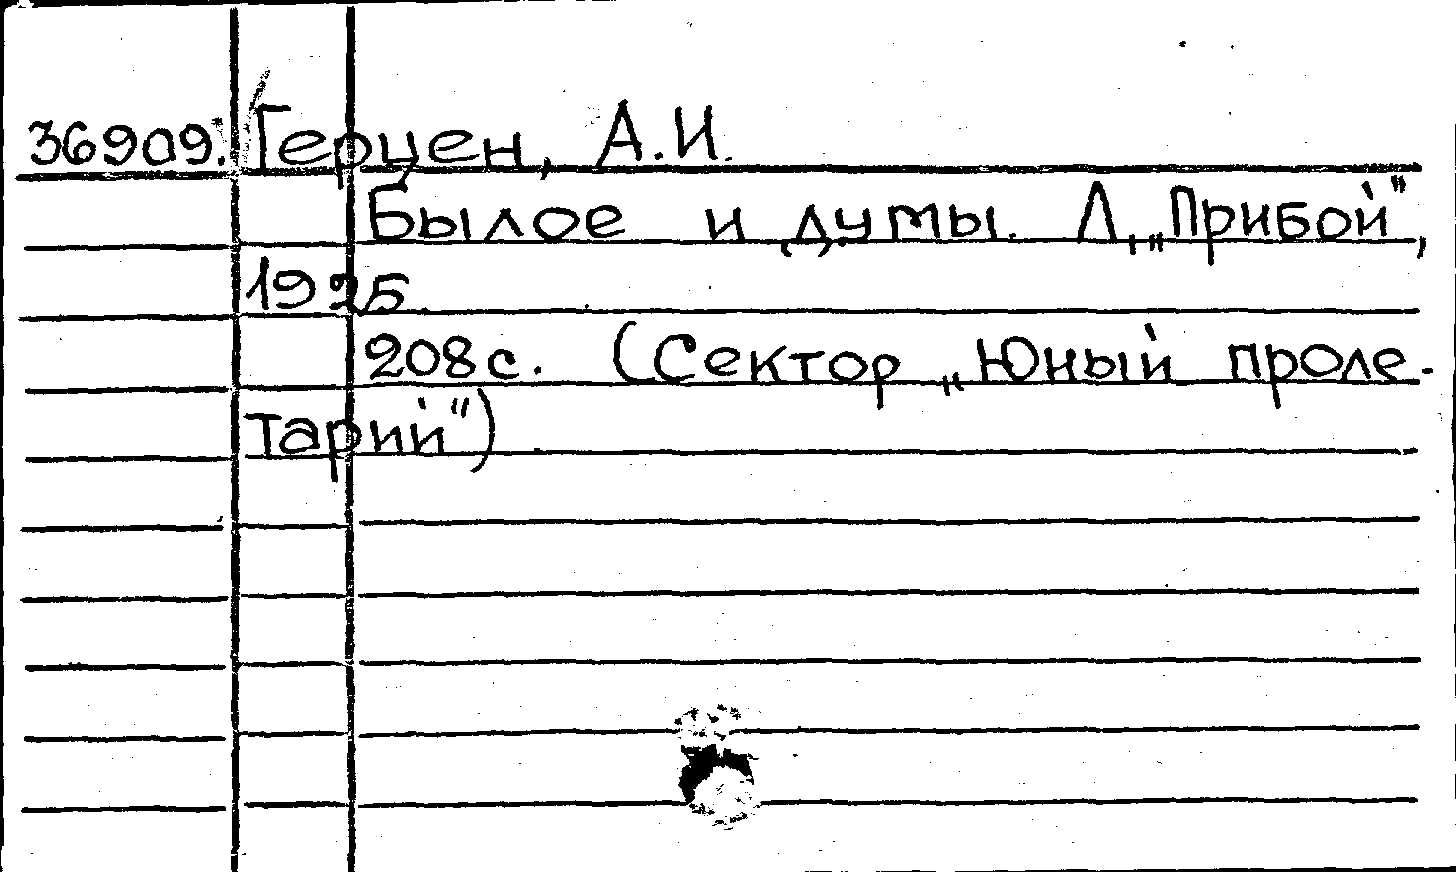 36909. Герцен, А.И.
Былое и думы. Л, „Прибой“,
1925.
208 с. (Сектор „Юный проле-
тарий“)